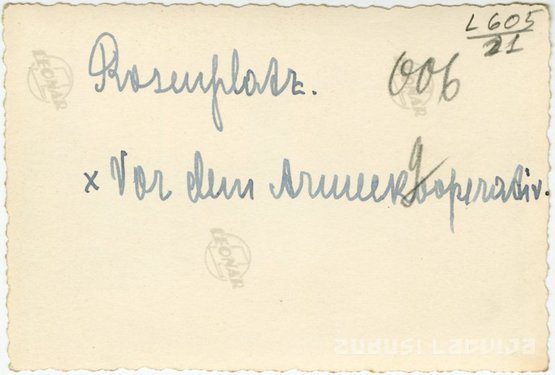 L605
21
006
Rosenplatz.
x Vor dem Armeekooperativ.
LEONAR
LEONAR
LEONAR
ZUDUSI LATVIJA